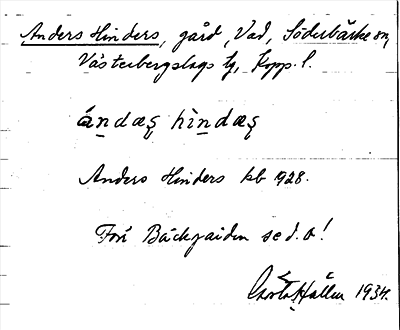 Anders Hinders, gård, Vad, Söderbärke sn,
Västerbergslags tg, Kopp. l.
ándæʂ hìndæʂ
Anders Hinders kb 928.
Förr Bäckgården se d. o!
Hallén 1934.